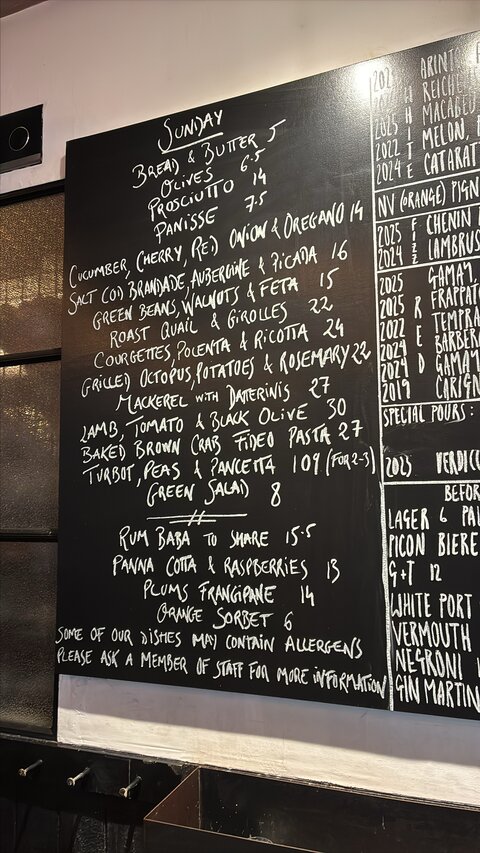 SUNDAY
BREAD & BUTTER 5
OLIVES 6.5
PROSCIUTTO 14
PANISSE 7.5
CUCUMBER, CHERRY, RED ONION & OREGANO 14
SALT COD BRANDADE, AUBERGINE & PICADA 16
GREEN BEANS, WALNUTS & FETA 15
ROAST QUAIL & GIROLLES 22
COURGETTES, POLENTA & RICOTTA 24
GRILLED OCTOPUS, POTATOES & ROSEMARY 22
MACKEREL WITH DATTERINIS 27
LAMB, TOMATO & BLACK OLIVE 30
BAKED BROWN CRAB FIDEO PASTA 27
TURBOT, PEAS & PANCETTA 109 (FOR 2-3)
GREEN SALAD 8
RUM BABA TO SHARE 15.5
PANNA COTTA & RASPBERRIES 13
PLUMS FRANGIPANE 14
ORANGE SORBET 6
SOME OF OUR DISHES MAY CONTAIN ALLERGENS
PLEASE ASK A MEMBER OF STAFF FOR MORE INFORMATION
ARINT
H REICHE
2025 H MACABEU
2025 I MELON,
2022 T
2024 E CATARAT
NV (ORANGE) PIGN
2025 F CHENIN
2024 Z LAMBRUS
2025 GAMAY,
2025 R FRAPPAT
2022 E TEMPRA
2024 BARBER
2024 D GAMAY
2019 CARIGN
SPECIAL POURS:
2023 VERDICC
BEFOR
LAGER 6 PAL
PICON BIERE
G+T 12
WHITE PORT
VERMOUTH
NEGRONI
GIN MARTIN